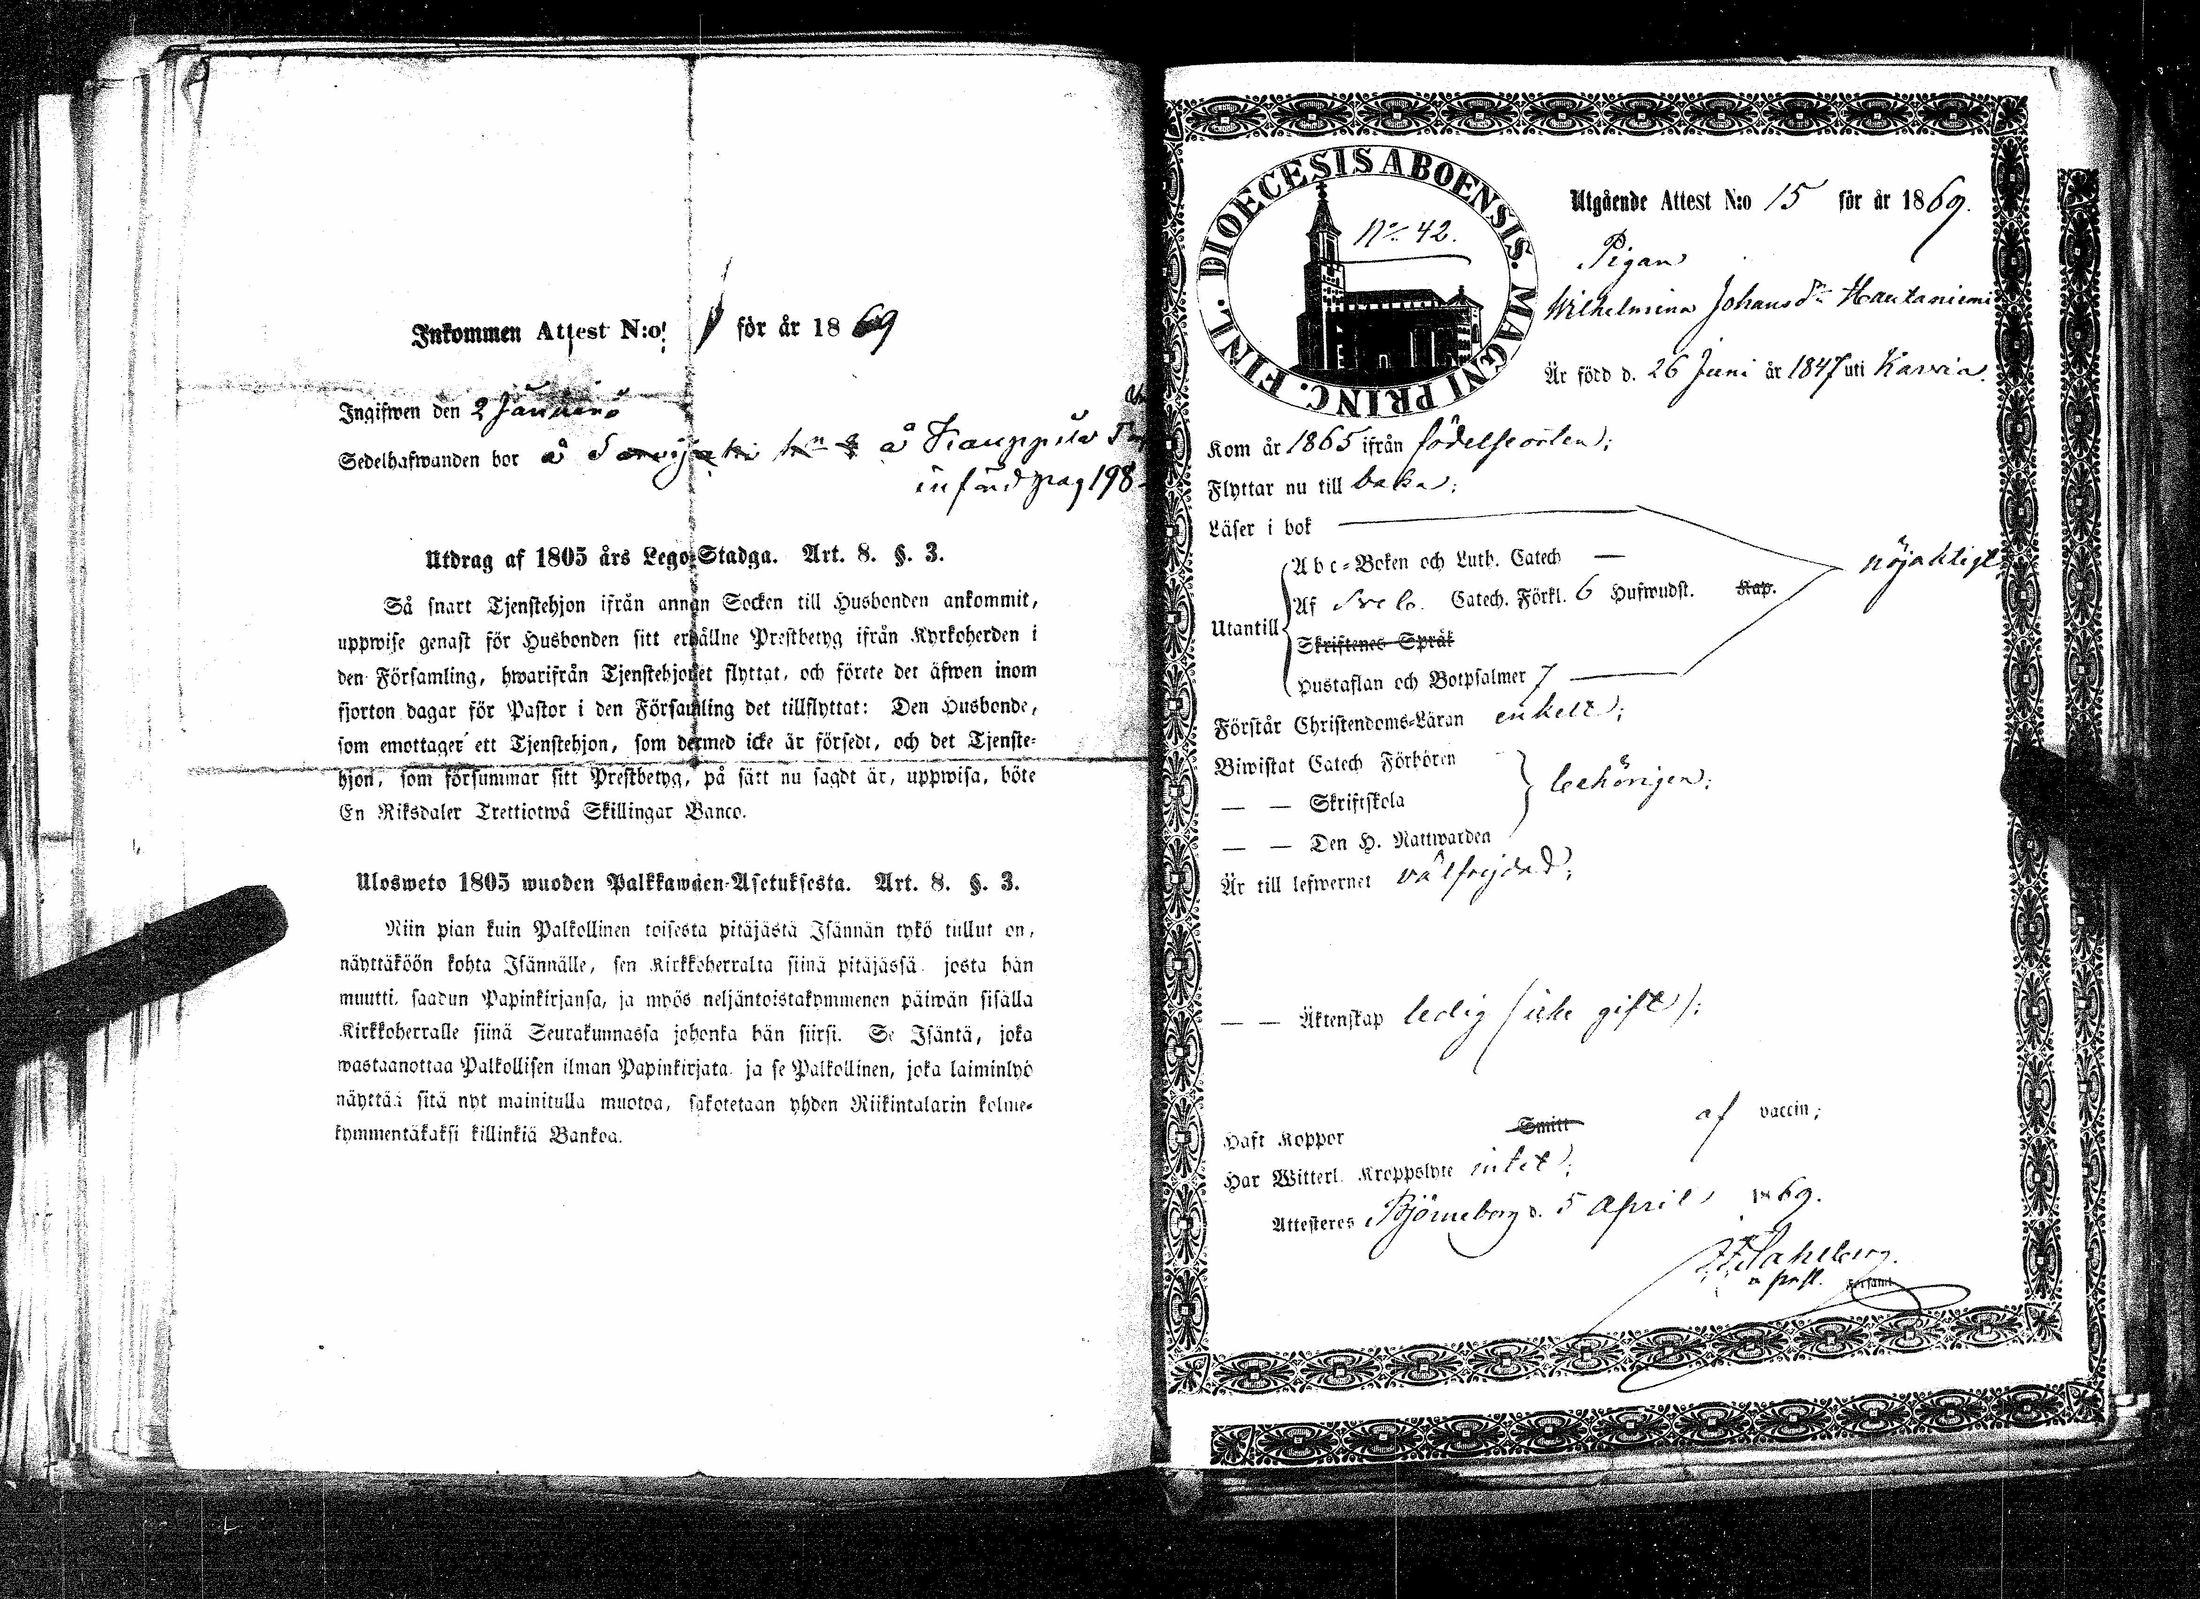 Inkommen Attest N:o 1 för år 1869
Ingifwen den 2 Januari
Sedelhafwanden bor å å Kauppila
införd pag 198
Utdrag af 1805 års Lego-Stadga. Art. 8. §. 3.
Så snart Tjenstehjon ifrån annan Socken till Husbonden ankommit,
uppwise genast för Husbonden sitt erhållne Prestbetyg ifrån Kyrkoherden i
den Församling, hwarifrån Tjenstehjonet flyttat, och förete det äfwen inom
fjorton dagar för Pastor i den Församling det tillflyttat: Den Husbonde,
som emottager ett Tjenstehjon, som dermed icke är försedt, och det Tjenste-
hjon, som försummar sitt Prestbetyg, på sätt nu sagdt är, uppwisa, böte
En Riksdaler Trettiotwå Skillingar Banco.
Ulosweto 1805 wuoden Palkkawäen-Asetuksesta. Art. 8. §. 3.
Niin pian kuin Palkollinen toisesta pitäjästä Isännän tykö tullut on,
näyttäköön kohta Isännälle, sen Kirkkoherralta siinä pitäjässä josta hän
muutti, saadun Papinkirjansa, ja myös neljäntoistakymmenen päiwän sisällä
Kirkkoherralle siinä Seurakunnassa johonka hän siirsi. Se Isäntä, joka
wastaanottaa Palkollisen ilman Papinkirjata ja se Palkollinen, joka laiminlyö
näyttää sitä nyt mainitulla muotoa, sakotetaan yhden Riikintalarin kolme-
kymmentäkaksi killinkiä Bankoa.
DIOECESIS ABOENSIS. MAGNI PRINC. FINL.
No 42.
Utgående Attest N:o 15 för år 1869.
Pigan
Wilhelmina Johansdr Hautaniemi
Är född d. 26 Juni år 1847 uti Karvia.
Kom år 1865 ifrån födelseorten;
Flyttar nu till baka;
Läser i bok
Abc-Boken och Luth. Catech —
Utantill
Af Sveb. Catech. Förkl. 6 Hufwudst. Kap.
nöjaktigt
Skriftenes Språk
Hustaflan och Botpsalmer 7
Förstår Christendoms-Läran enkelt;
Biwistat Catech Förhören
— — Skriftskola
behörigen;
— — Den H. Nattwarden
Är till lefwernet välfrejdad;
— — Äktenskap ledig (icke gift);
Haft Koppor Smitt af vaccin;
Har Witterl. Kroppslyte intet;
Attesteres Björneborg d. 5 April 1869.
Församl.